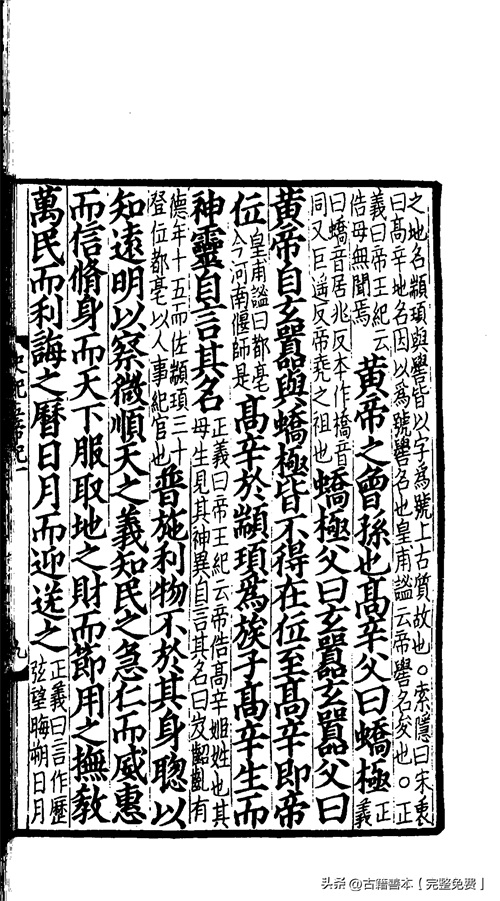 之地名顓頊與嚳皆以字爲號上古質故也○索隱曰宋衷
曰高辛地名因以爲號嚳名也皇甫謐云帝嚳名夋也○正
義曰帝王紀云
俈母無聞焉
黃帝之曾孫也高辛父曰蟜極
正
義
曰蟜音居兆反本作橋音
同又巨遥反帝堯之祖也
蟜極父曰玄囂玄囂父曰
黃帝自玄囂與蟜極皆不得在位至高辛即帝
位
皇甫謐曰都亳
今河南偃師是
高辛於顓頊爲族子高辛生而
神靈自言其名
正義曰帝王紀云帝俈高辛姬姓也其
母生見其神異自言其名曰岌齠齓有
德年十五而佐顓頊三十
登位都亳以人事紀官也
普施利物不於其身聰以
知遠明以察微順天之義知民之急仁而威惠
而信脩身而天下服取地之財而節用之撫教
萬民而利誨之曆日月而迎送之
正義曰言作曆
弦望晦朔日月
史紀五帝紀一
九
头条@古籍善本【完整免费】